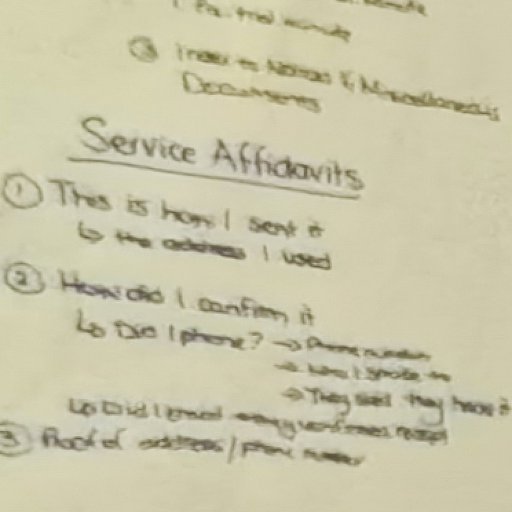 ③ Index to Notices & Miscellaneous
Documents
Service Affidavits
① This is how I sent it
↳ the address I used
② How did I confirm it
↳ Did I phone? → Phone number
→ who I spoke to
→ They said they have it
↳ Did I email
③ Proof of address/phone number